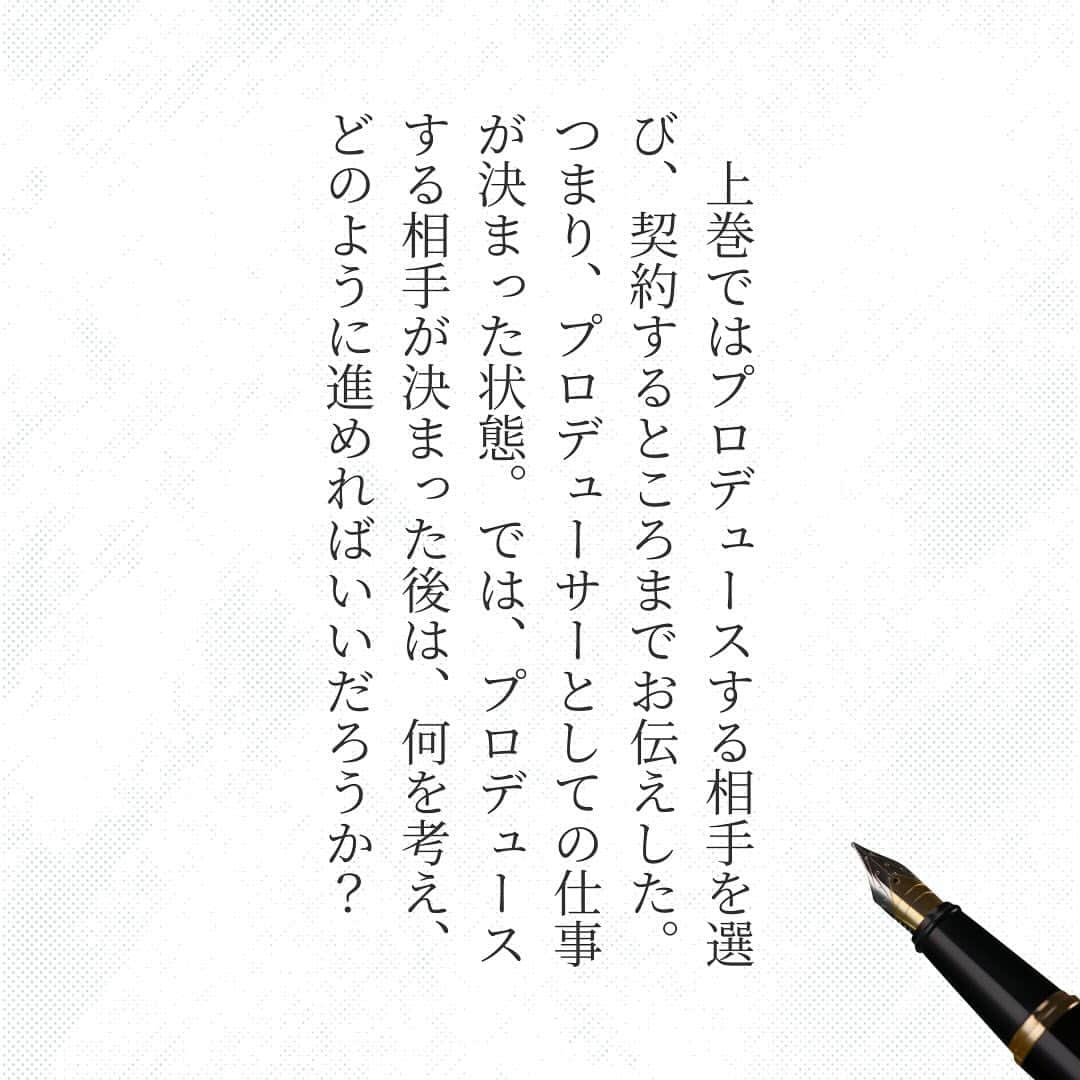 上巻ではプロデュースする相手を選
び、契約するところまでお伝えした。
つまり、プロデューサーとしての仕事
が決まった状態。では、プロデュース
する相手が決まった後は、何を考え、
どのように進めればいいだろうか？